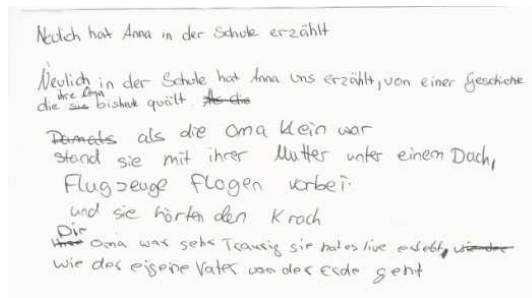 Neulich hat Anna in der Schule erzählt
Neulich in der Schule hat Anna uns erzählt, von einer Geschichte
ihre Oma
die sie bis heute quält. Als die
Damals als die Oma klein war
stand sie mit ihrer Mutter unter einem Dach,
Flugzeuge flogen vorbei
und sie hörten den Krach
Die
Oma war sehr Traurig sie hat es live erlebt,
wie der eigene Vater von der Erde geht